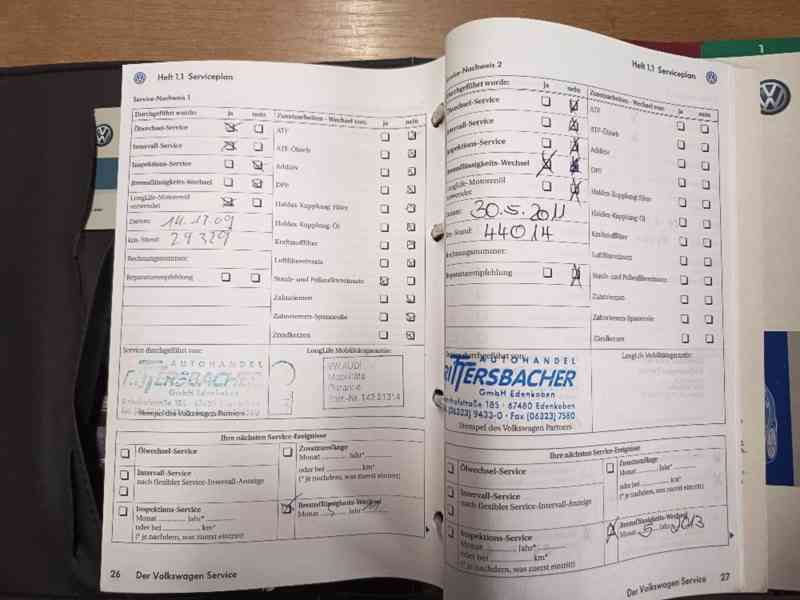 Heft 1.1 Serviceplan
Service-Nachweis 1
Durchgeführt wurde: ja nein
Ölwechsel-Service
Intervall-Service
Inspektions-Service
Bremsflüssigkeits-Wechsel
LongLife-Motorenöl
verwendet
Datum:
km-Stand: 29329
Rechnungsnummer:
Reparaturempfehlung
Zusatzarbeiten - Wechsel von: ja nein
ATF
ATF-Ölsieb
Additiv
DPF
Haldex-Kupplung Filter
Haldex-Kupplung Öl
Kraftstofffilter
Luftfiltereinsatz
Staub- und Pollenfiltereinsatz
Zahnriemen
Zahnriemen-Spannrolle
Zündkerzen
Service durchgeführt von:
AUTOHANDEL
RITTERSBACHER
GmbH Edenkoben
Stempel des Volkswagen Partners
LongLife Mobilitätsgarantie:
VW/AUDI
Mobilitäts
Garantie
Ihre nächsten Service-Ereignisse
Ölwechsel-Service
Intervall-Service
nach flexibler Service-Intervall-Anzeige
Inspektions-Service
Monat ........ Jahr* ........
oder bei ........ km*
(* je nachdem, was zuerst eintritt)
Zusatzumfänge
Monat ........ Jahr* ........
oder bei ........ km*
(* je nachdem, was zuerst eintritt)
Bremsflüssigkeits-Wechsel
Monat 5 Jahr 11
26 Der Volkswagen Service
Service-Nachweis 2
Heft 1.1 Serviceplan
Durchgeführt wurde: ja nein
Ölwechsel-Service
Intervall-Service
Inspektions-Service
Bremsflüssigkeits-Wechsel
LongLife-Motorenöl
verwendet
Datum: 30.5.2011
km-Stand: 44014
Rechnungsnummer:
Reparaturempfehlung
Zusatzarbeiten - Wechsel von: ja nein
ATF
ATF-Ölsieb
Additiv
DPF
Haldex-Kupplung Filter
Haldex-Kupplung Öl
Kraftstofffilter
Luftfiltereinsatz
Staub- und Pollenfiltereinsatz
Zahnriemen
Zahnriemen-Spannrolle
Zündkerzen
durchgeführt von:
AUTOHANDEL
RITTERSBACHER
GmbH Edenkoben
185 · 67480 Edenkoben
(06323) 9433-0 · Fax (06323) 7580
Stempel des Volkswagen Partners
LongLife Mobilitätsgarantie:
Ihre nächsten Service-Ereignisse
Ölwechsel-Service
Intervall-Service
nach flexibler Service-Intervall-Anzeige
Inspektions-Service
Monat ........ Jahr* ........
oder bei ........ km*
(* je nachdem, was zuerst eintritt)
Zusatzumfänge
Monat ........ Jahr* ........
oder bei ........ km*
(* je nachdem, was zuerst eintritt)
Bremsflüssigkeits-Wechsel
Monat 5 Jahr 2013
Der Volkswagen Service 27
1